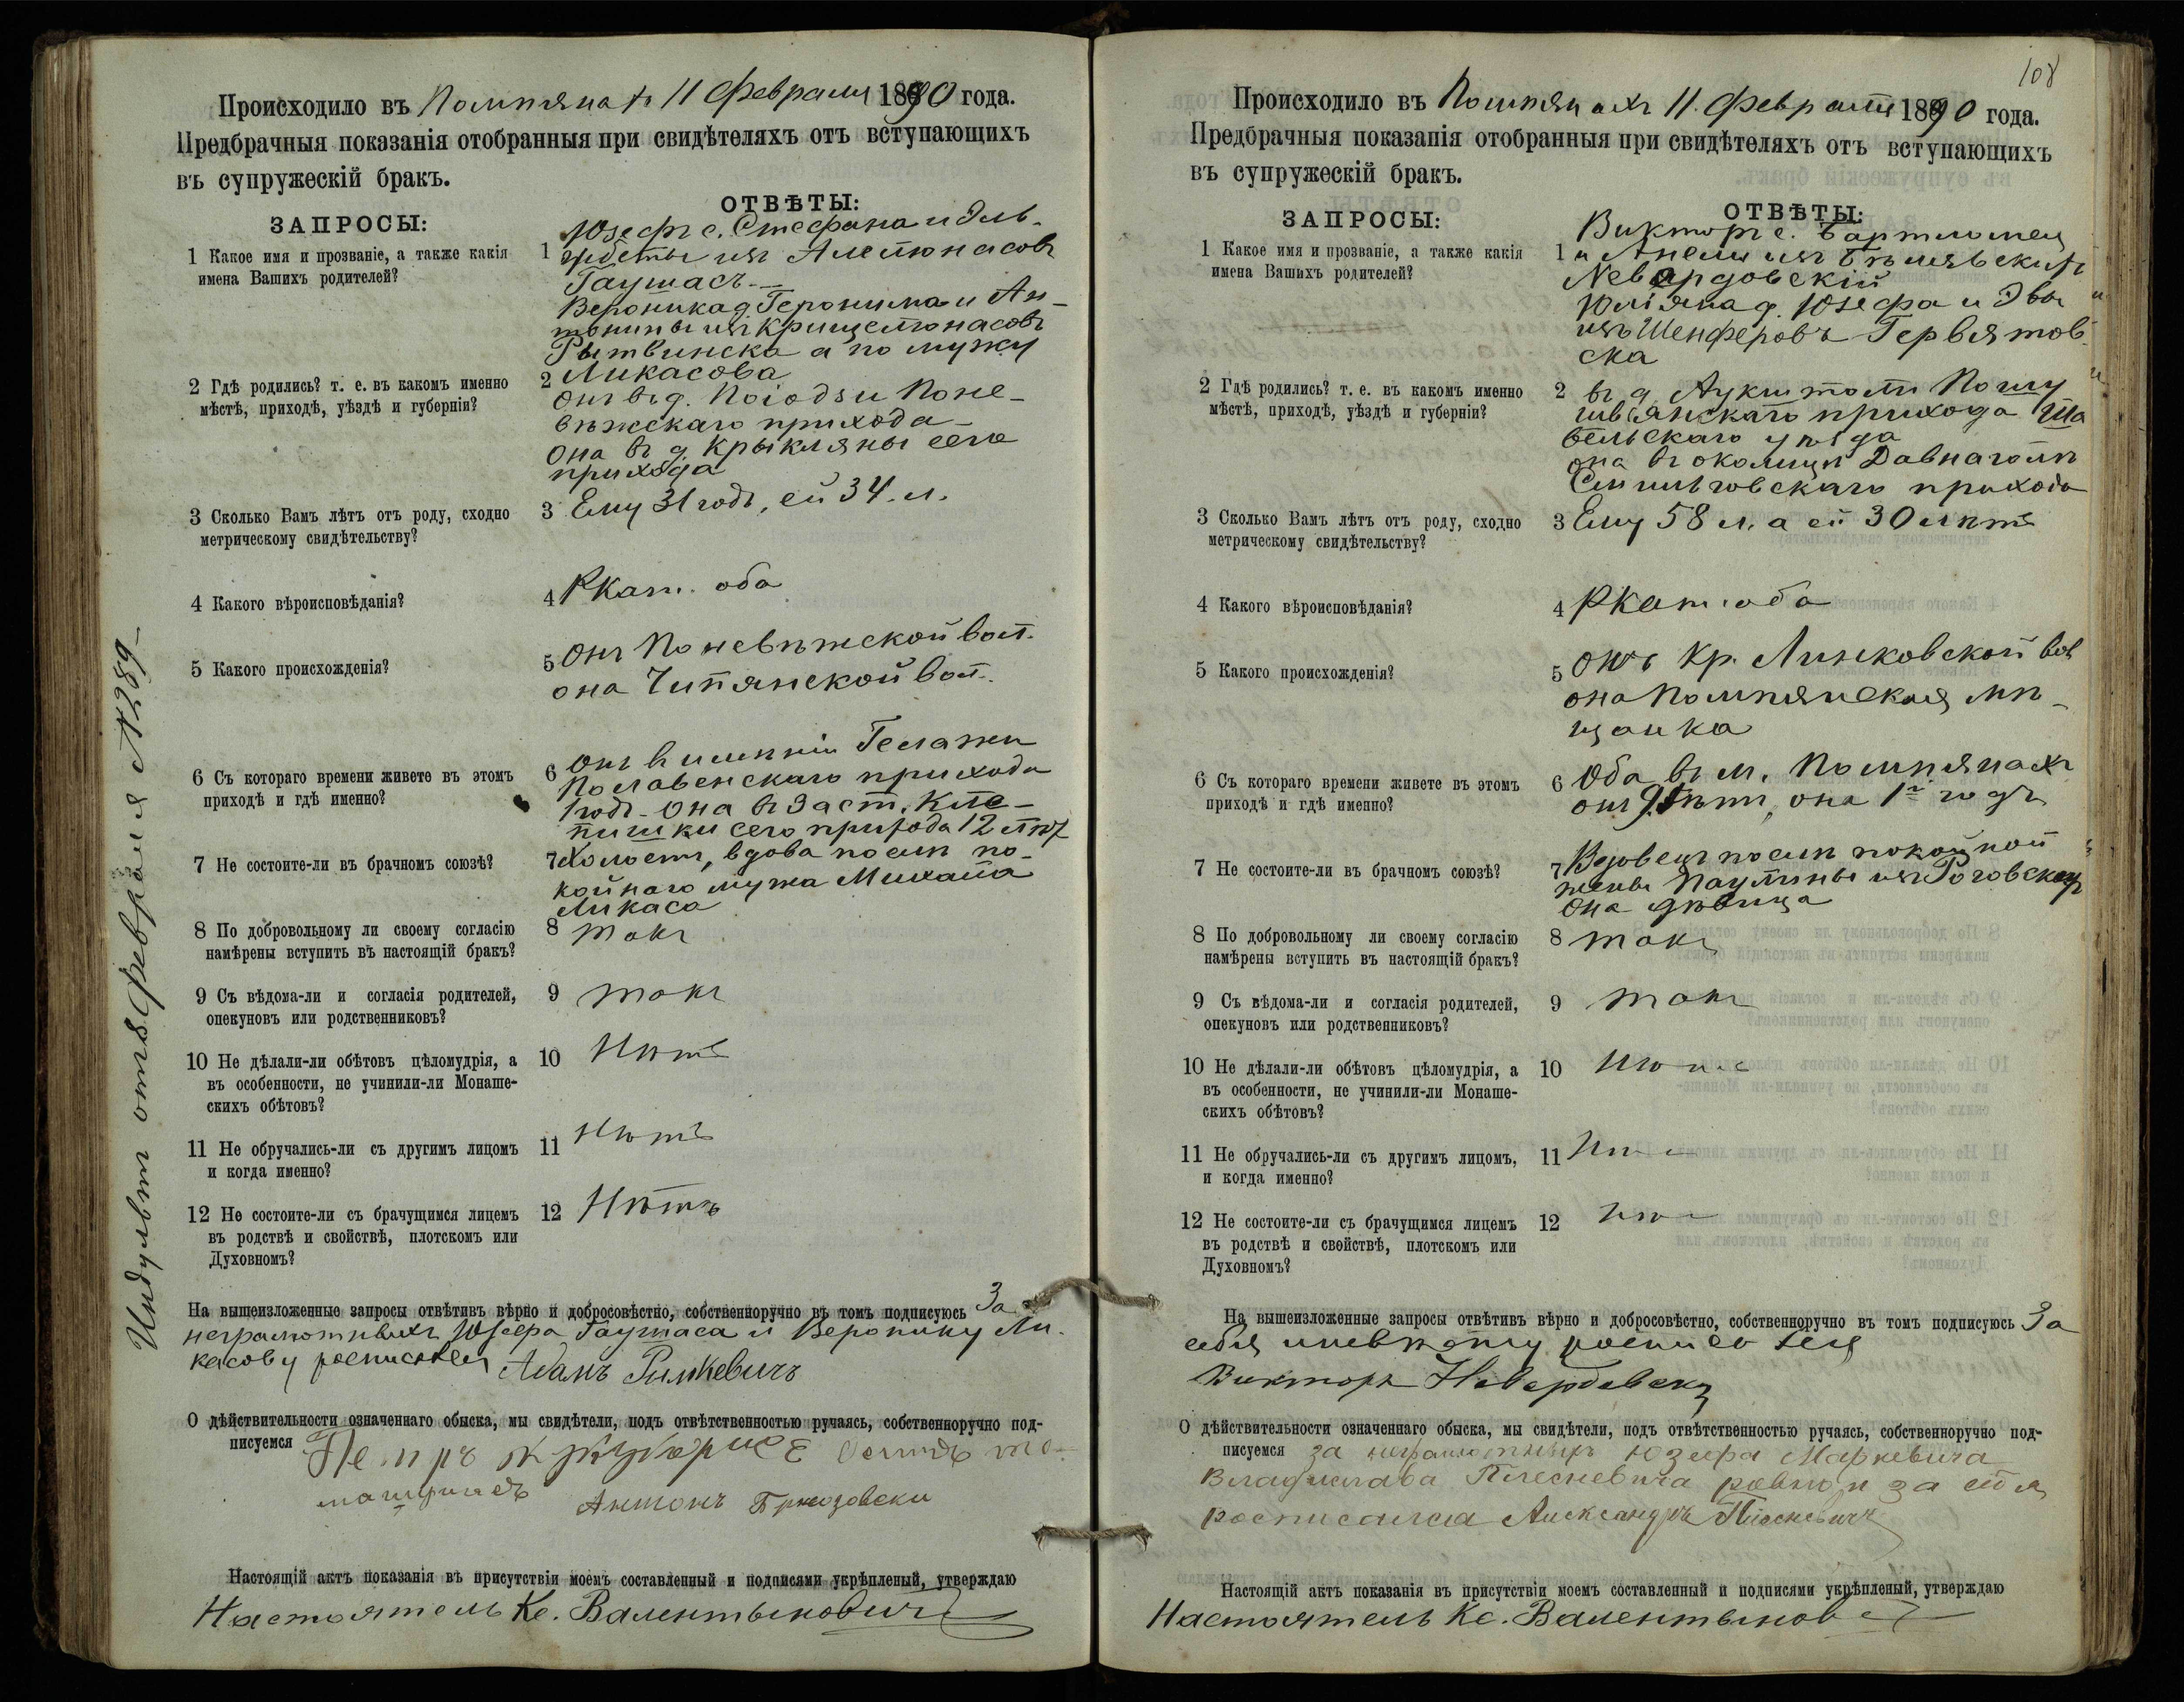 Происходило въ Помпянахъ 11 Февраля 1890 года.
Предбрачныя показанія отобранныя при свидѣтеляхъ отъ вступающихъ
въ супружескій бракъ.
ЗАПРОСЫ:
ОТВѢТЫ:
1 Какое имя и прозваніе, а также какія
имена Вашихъ родителей?
1 Юзефъ с. Стефана и Эль-
жбеты изъ Алетюнасовъ
Гаушасъ.
Вероника д. Геронима и Ан-
тонины изъ
Рытвинска а по мужу
Ликасова
2 Гдѣ родились? т. е. въ какомъ именно
мѣстѣ, приходѣ, уѣздѣ и губерніи?
2 онъ въ д. Поне-
вѣжскаго прихода
Она въ д. Крыкляны сего
прихода
3 Сколько Вамъ лѣтъ отъ роду, сходно
метрическому свидѣтельству?
3 Ему 31 годъ, ей 34. л.
4 Какого вѣроисповѣданія?
4 Ркат. оба
5 Какого происхожденія?
5 Онъ Поневѣжской вол.
она вол.
6 Съ котораго времени живете въ этомъ
приходѣ и гдѣ именно?
6 Онъ в имѣніи
прихода
1 годъ. Она въ заст.
сего прихода 12 лѣтъ
7 Не состоите-ли въ брачномъ союзѣ?
7 Холостъ, вдова послѣ по-
койнаго мужа Михаила
Ликаса
8 По добровольному ли своему согласію
намѣрены вступить въ настоящій бракъ?
8 такъ
9 Съ вѣдома-ли и согласія родителей,
опекуновъ или родственниковъ?
9 такъ
10 Не дѣлали-ли обѣтовъ цѣломудрія, а
въ особенности, не учинили-ли Монаше-
скихъ обѣтовъ?
10 Нѣтъ
11 Не обручались-ли съ другимъ лицомъ
и когда именно?
11 Нѣтъ
12 Не состоите-ли съ брачущимся лицемъ
въ родствѣ и свойствѣ, плотскомъ или
Духовномъ?
12 Нѣтъ
На вышеизложенные запросы отвѣтивъ вѣрно и добросовѣстно, собственноручно въ томъ подписуюсь За
неграмотныхъ Юзефа Гаушаса и Веронику Ли-
касову росписался Адамъ Римкевичъ
О дѣйствительности означеннаго обыска, мы свидѣтели, подъ отвѣтственностью ручаясь, собственноручно под-
писуемся Петръ
Антонъ Бржозовски
Настоящій актъ показанія въ присутствіи моемъ составленный и подписями укрѣпленый, утверждаю
Настоятель Кс. Валентыновичъ
Индультъ отъ 8 Февраля №289
108
Происходило въ Помпянахъ 11. Февраля 1890 года.
Предбрачныя показанія отобранныя при свидѣтеляхъ отъ вступающихъ
въ супружескій бракъ.
ЗАПРОСЫ:
ОТВѢТЫ:
1 Какое имя и прозваніе, а также какія
имена Вашихъ родителей?
1 Викторъ с. Бартломея
и Анели изъ
Невардовскій
Юліяна д. Юзефа и Эвы
изъ Шенферовъ Гервятов-
ска
2 Гдѣ родились? т. е. въ какомъ именно
мѣстѣ, приходѣ, уѣздѣ и губерніи?
2 въ д.
прихода Ша
вельскаго уѣзда
она въ околицѣ
прихода
3 Сколько Вамъ лѣтъ отъ роду, сходно
метрическому свидѣтельству?
3 Ему 58 л. а ей 30 лѣтъ
4 Какого вѣроисповѣданія?
4 Ркат. оба
5 Какого происхожденія?
5 Онъ кр. Линковской вол
она Помпянская мѣ-
щанка
6 Съ котораго времени живете въ этомъ
приходѣ и гдѣ именно?
6 Оба въ м. Помпянахъ
онъ 9 лѣтъ, она 1 годъ
7 Не состоите-ли въ брачномъ союзѣ?
7 Вдовецъ послѣ покойной
жены Паулины изъ Роговскихъ
Она дѣвица
8 По добровольному ли своему согласію
намѣрены вступить въ настоящій бракъ?
8 такъ
9 Съ вѣдома-ли и согласія родителей,
опекуновъ или родственниковъ?
9 такъ
10 Не дѣлали-ли обѣтовъ цѣломудрія, а
въ особенности, не учинили-ли Монаше-
скихъ обѣтовъ?
10 Нѣтъ
11 Не обручались-ли съ другимъ лицомъ,
и когда именно?
11
12 Не состоите-ли съ брачущимся лицемъ
въ родствѣ и свойствѣ, плотскомъ или
Духовномъ?
12
На вышеизложенные запросы отвѣтивъ вѣрно и добросовѣстно, собственноручно въ томъ подписуюсь За
себя и невѣсту
Викторъ Невердовски
О дѣйствительности означеннаго обыска, мы свидѣтели, подъ отвѣтственностью ручаясь, собственноручно под-
писуемся за неграмотныхъ Юзефа Маркевича
Владислава Плесневича ровно и за себя
росписался Александръ Плесневичъ
Настоящій актъ показанія въ присутствіи моемъ составленный и подписями укрѣпленый, утверждаю
Настоятель Кс. Валентынов